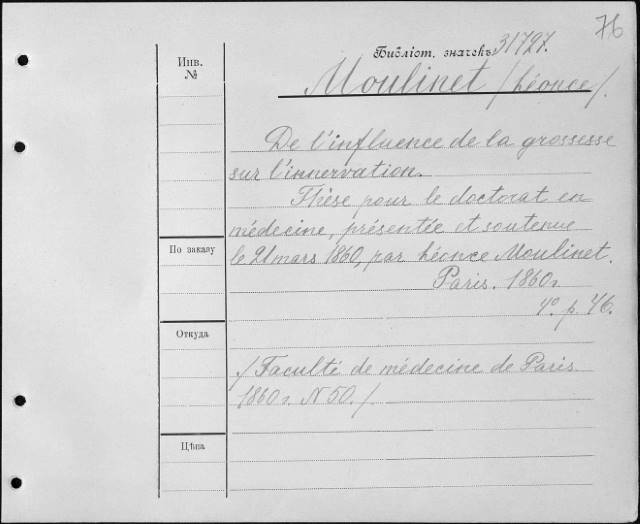 76
Библіот. значекъ 31727.
Инв.
№
Moulinet /Léonce/.
De l'influence de la grossesse
sur l'innervation.
Thèse pour le doctorat en
médecine, présentée et soutenue
По заказу
le 21 mars 1860, par Léonce Moulinet.
Paris. 1860г.
4° p. 46.
Откуда
/Faculté de médecine de Paris
1860г. N 50./
Цѣна